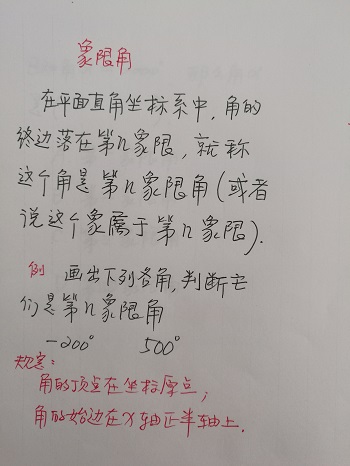 象限角
在平面直角坐标系中,角的
终边落在第n象限,就称
这个角是第n象限角(或者
说这个象属于第n象限).
例 画出下列各角,判断它
们是第n象限角
-200° 500°
规定:
角的顶点在坐标原点,
角的始边在x轴正半轴上.